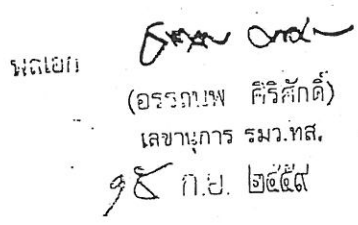 พลเอก
(อรรถนพ ศิริศักดิ์)
เลขานุการ รมว.ทส.
๑๕ ก.ย. ๒๕๕๙